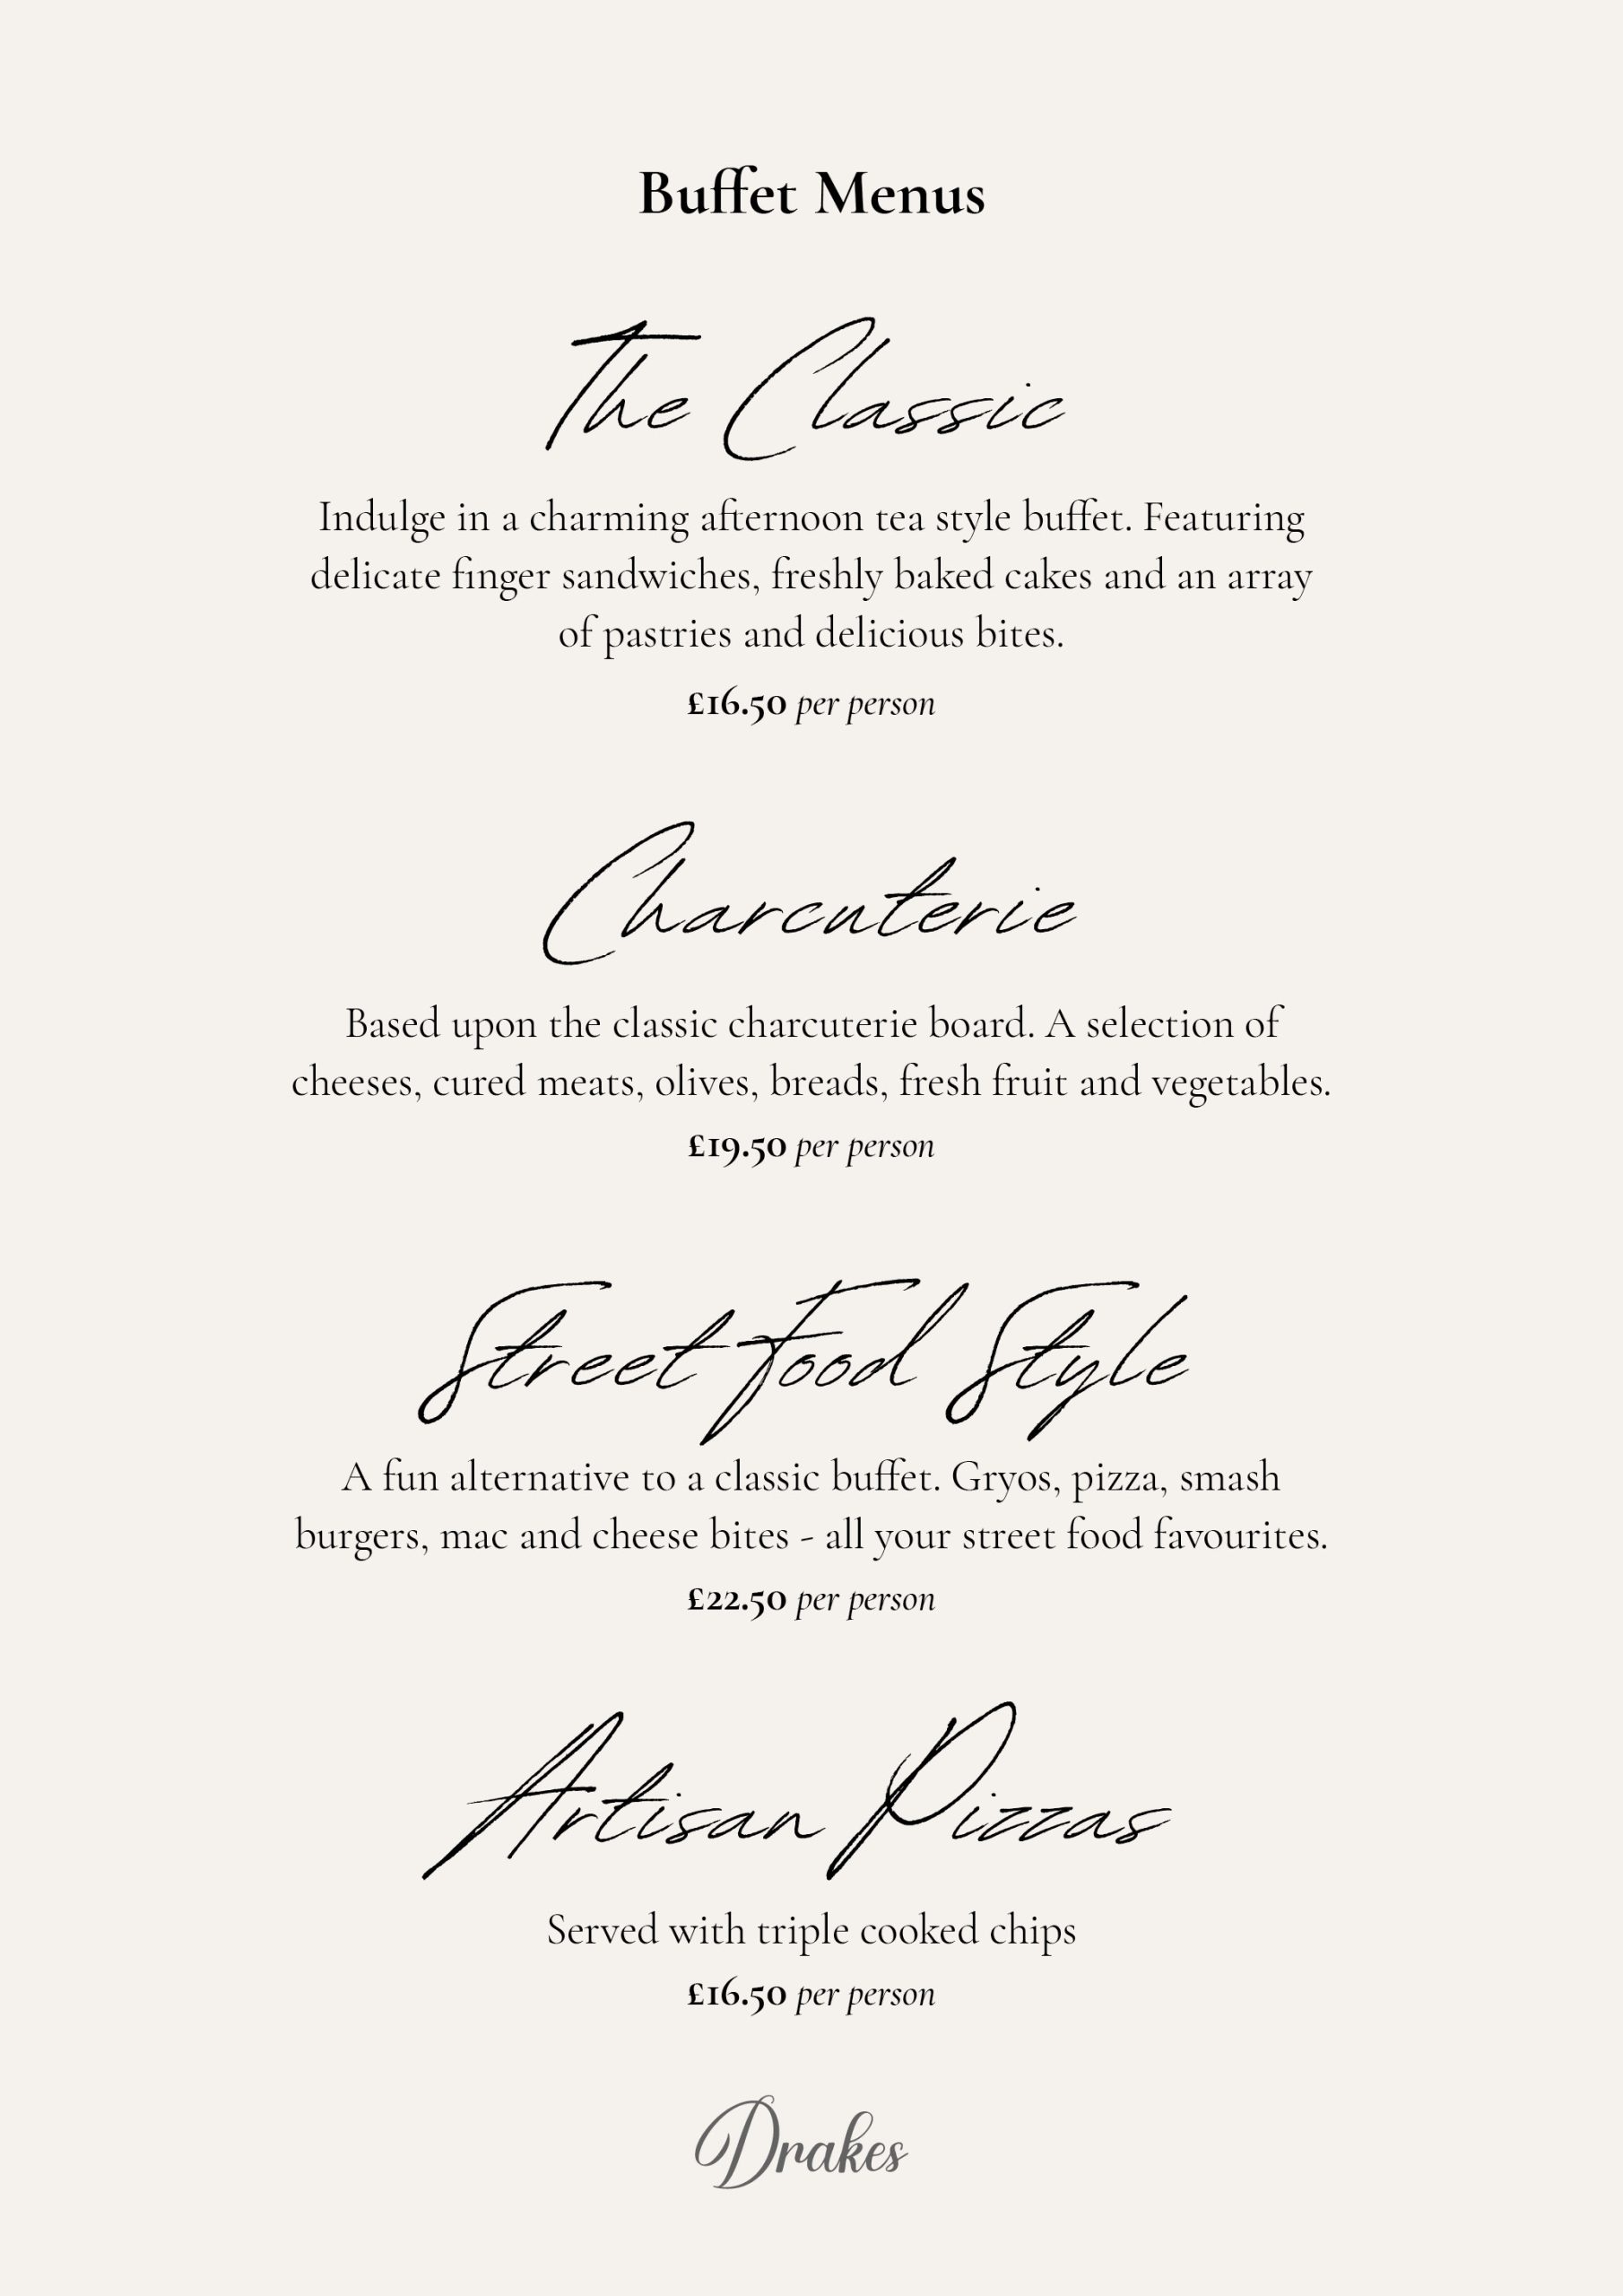 Buffet Menus
The Classic
Indulge in a charming afternoon tea style buffet. Featuring
delicate finger sandwiches, freshly baked cakes and an array
of pastries and delicious bites.
£16.50 per person
Charcuterie
Based upon the classic charcuterie board. A selection of
cheeses, cured meats, olives, breads, fresh fruit and vegetables.
£19.50 per person
Street Food Style
A fun alternative to a classic buffet. Gryos, pizza, smash
burgers, mac and cheese bites - all your street food favourites.
£22.50 per person
Artisan Pizzas
Served with triple cooked chips
£16.50 per person
Drakes